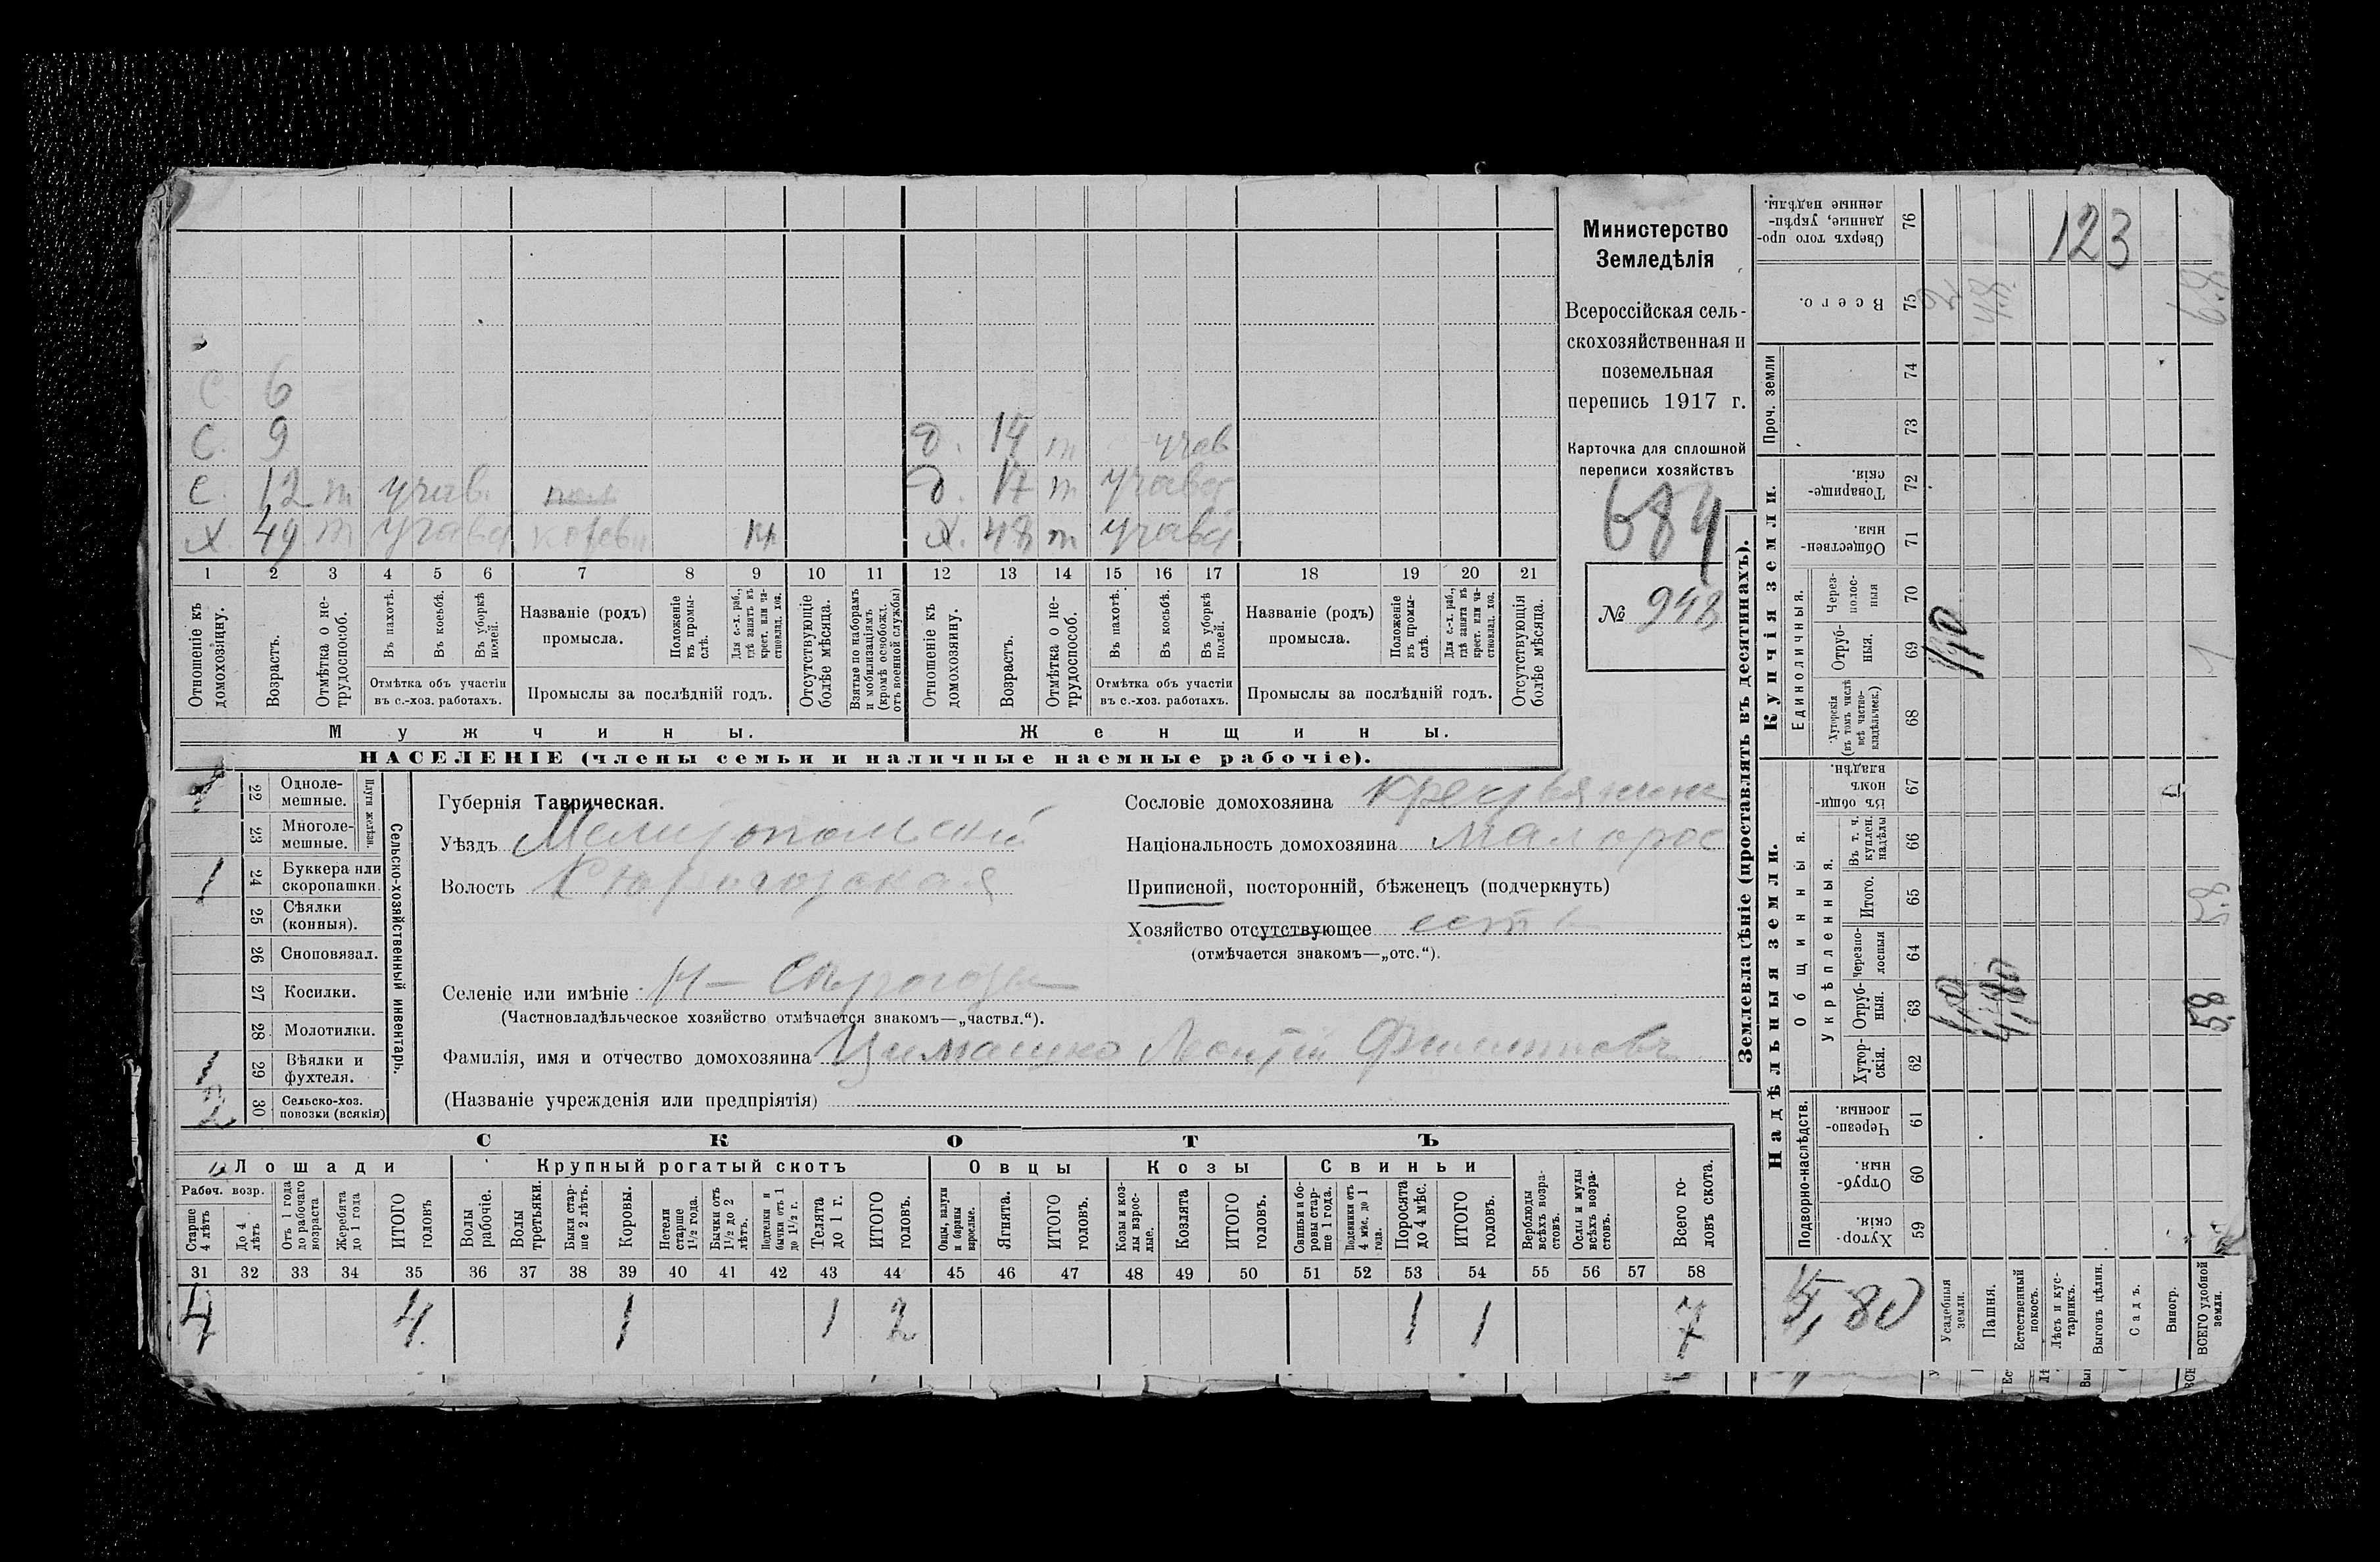 С. 6
С. 9
С. 12 т
Х. 49 т
д. 14 т
д. 17 т
Х. 48 т
1 2 3 4 5 6 7 8 9 10 11 12 13 14 15 16 17 18 19 20 21
Отношеніе къ домохозяину.
Возрастъ.
Отмѣтка о не-трудоспособ.
Въ пахотѣ.
Въ косьбѣ.
Въ уборкѣ полей.
Отмѣтка объ участіи въ с.-хоз. работахъ.
Названіе (родъ) промысла.
Положеніе въ промы-слѣ.
Для с.-х. раб., гдѣ занятъ въ крест. или ча-стновлад. хоз.
Промыслы за послѣдній годъ.
Отсутствующіе болѣе мѣсяца.
Взятые по наборамъ и мобилизаціямъ (кромѣ освобожд. отъ военной службы)
Отношеніе къ домохозяину.
Возрастъ.
Отмѣтка о не-трудоспособ.
Въ пахотѣ.
Въ косьбѣ.
Въ уборкѣ полей.
Отмѣтка объ участіи въ с.-хоз. работахъ.
Названіе (родъ) промысла.
Положеніе въ промы-слѣ.
Для с.-х. раб., гдѣ занята въ крест. или ча-стновлад. хоз.
Промыслы за послѣдній годъ.
Отсутствующія болѣе мѣсяца.
Мужчины.
Женщины.
НАСЕЛЕНІЕ (члены семьи и наличные наемные рабочіе).
Министерство
Земледѣлія
Всероссійская сель-
скохозяйственная и
поземельная
перепись 1917 г.
Карточка для сплошной
переписи хозяйствъ
684
№ 948
22 Одноле-мешные.
23 Многоле-мешные.
Плуги желѣзн.
1 24 Буккера или скоропашки.
25 Сѣялки (конныя).
26 Сноповязал.
27 Косилки.
28 Молотилки.
1 29 Вѣялки и фухтеля.
2 30 Сельско-хоз. повозки (всякія)
Сельско-хозяйственный инвентарь.
Губернія Таврическая.
Уѣздъ Мелитопольскій
Волость
Сословіе домохозяина крестьянинъ
Національность домохозяина малорос
Приписной, посторонній, бѣженецъ (подчеркнуть)
Хозяйство отсутствующее есть
(отмѣчается знакомъ—„отс.“).
Селеніе или имѣніе Н-Сѣрогозы
(Частновладѣльческое хозяйство отмѣчается знакомъ—„частвл.“).
Фамилія, имя и отчество домохозяина Цимашко Леонтій Филипповъ
(Названіе учрежденія или предпріятія)
СКОТЪ
Лошади
Крупный рогатый скотъ
Овцы
Козы
Свиньи
Рабоч. возр.
Старше 4 лѣтъ
До 4 лѣтъ
Отъ 1 года до рабочаго возраста
Жеребята до 1 года
ИТОГО головъ
Волы рабочіе.
Волы третьяки.
Быки стар-ше 2 лѣтъ.
Коровы.
Нетели старше 1½ года.
Бычки отъ 1½ до 2 лѣтъ.
Подтелки и бычки отъ 1 до 1½ г.
Телята до 1 г.
ИТОГО головъ.
Овцы, валухи и бараны взрослые.
Ягнята.
ИТОГО головъ.
Козы и коз-лы взрос-лые.
Козлята
ИТОГО головъ.
Свиньи и бо-ровы стар-ше 1 года.
Подсвинки отъ 4 мѣс. до 1 года.
Поросята до 4 мѣс.
ИТОГО головъ.
Верблюды всѣхъ возра-стовъ.
Ослы и мулы всѣхъ возра-стовъ.
Всего го-ловъ скота.
31 32 33 34 35 36 37 38 39 40 41 42 43 44 45 46 47 48 49 50 51 52 53 54 55 56 57 58
4 4 1 1 2 1 1 7
Землевладѣніе (проставлять въ десятинахъ).
Купчія земли.
Надѣльныя земли.
Сверхъ того про-данные, укрѣп-ленные надѣлы. 76
123
Всего. 75
Проч. земли
74
73
Товарище-скія. 72
Обществен-ныя. 71
Единоличныя.
Через-полос-ныя 70
Отруб-ныя. 69
Хуторскія (въ томъ числѣ всѣ частно-владѣльческ.) 68
Общинныя.
Въ общи-номъ владѣн. 67
Укрѣпленныя.
Въ т. ч. куплен. надѣлы 66
Итого. 65
Черезпо-лосныя 64
Отруб-ныя. 63
5,8
Хутор-скія. 62
Подворно-наслѣдств.
Черезпо-лосныя. 61
Отруб-ныя. 60
Хутор-скія. 59
5,80
Усадебныя земли.
Пашня.
Естественный покосъ.
Лѣсъ и кус-тарникъ.
Выгонъ цѣлин.
Садъ.
Виногр.
ВСЕГО удобной земли.